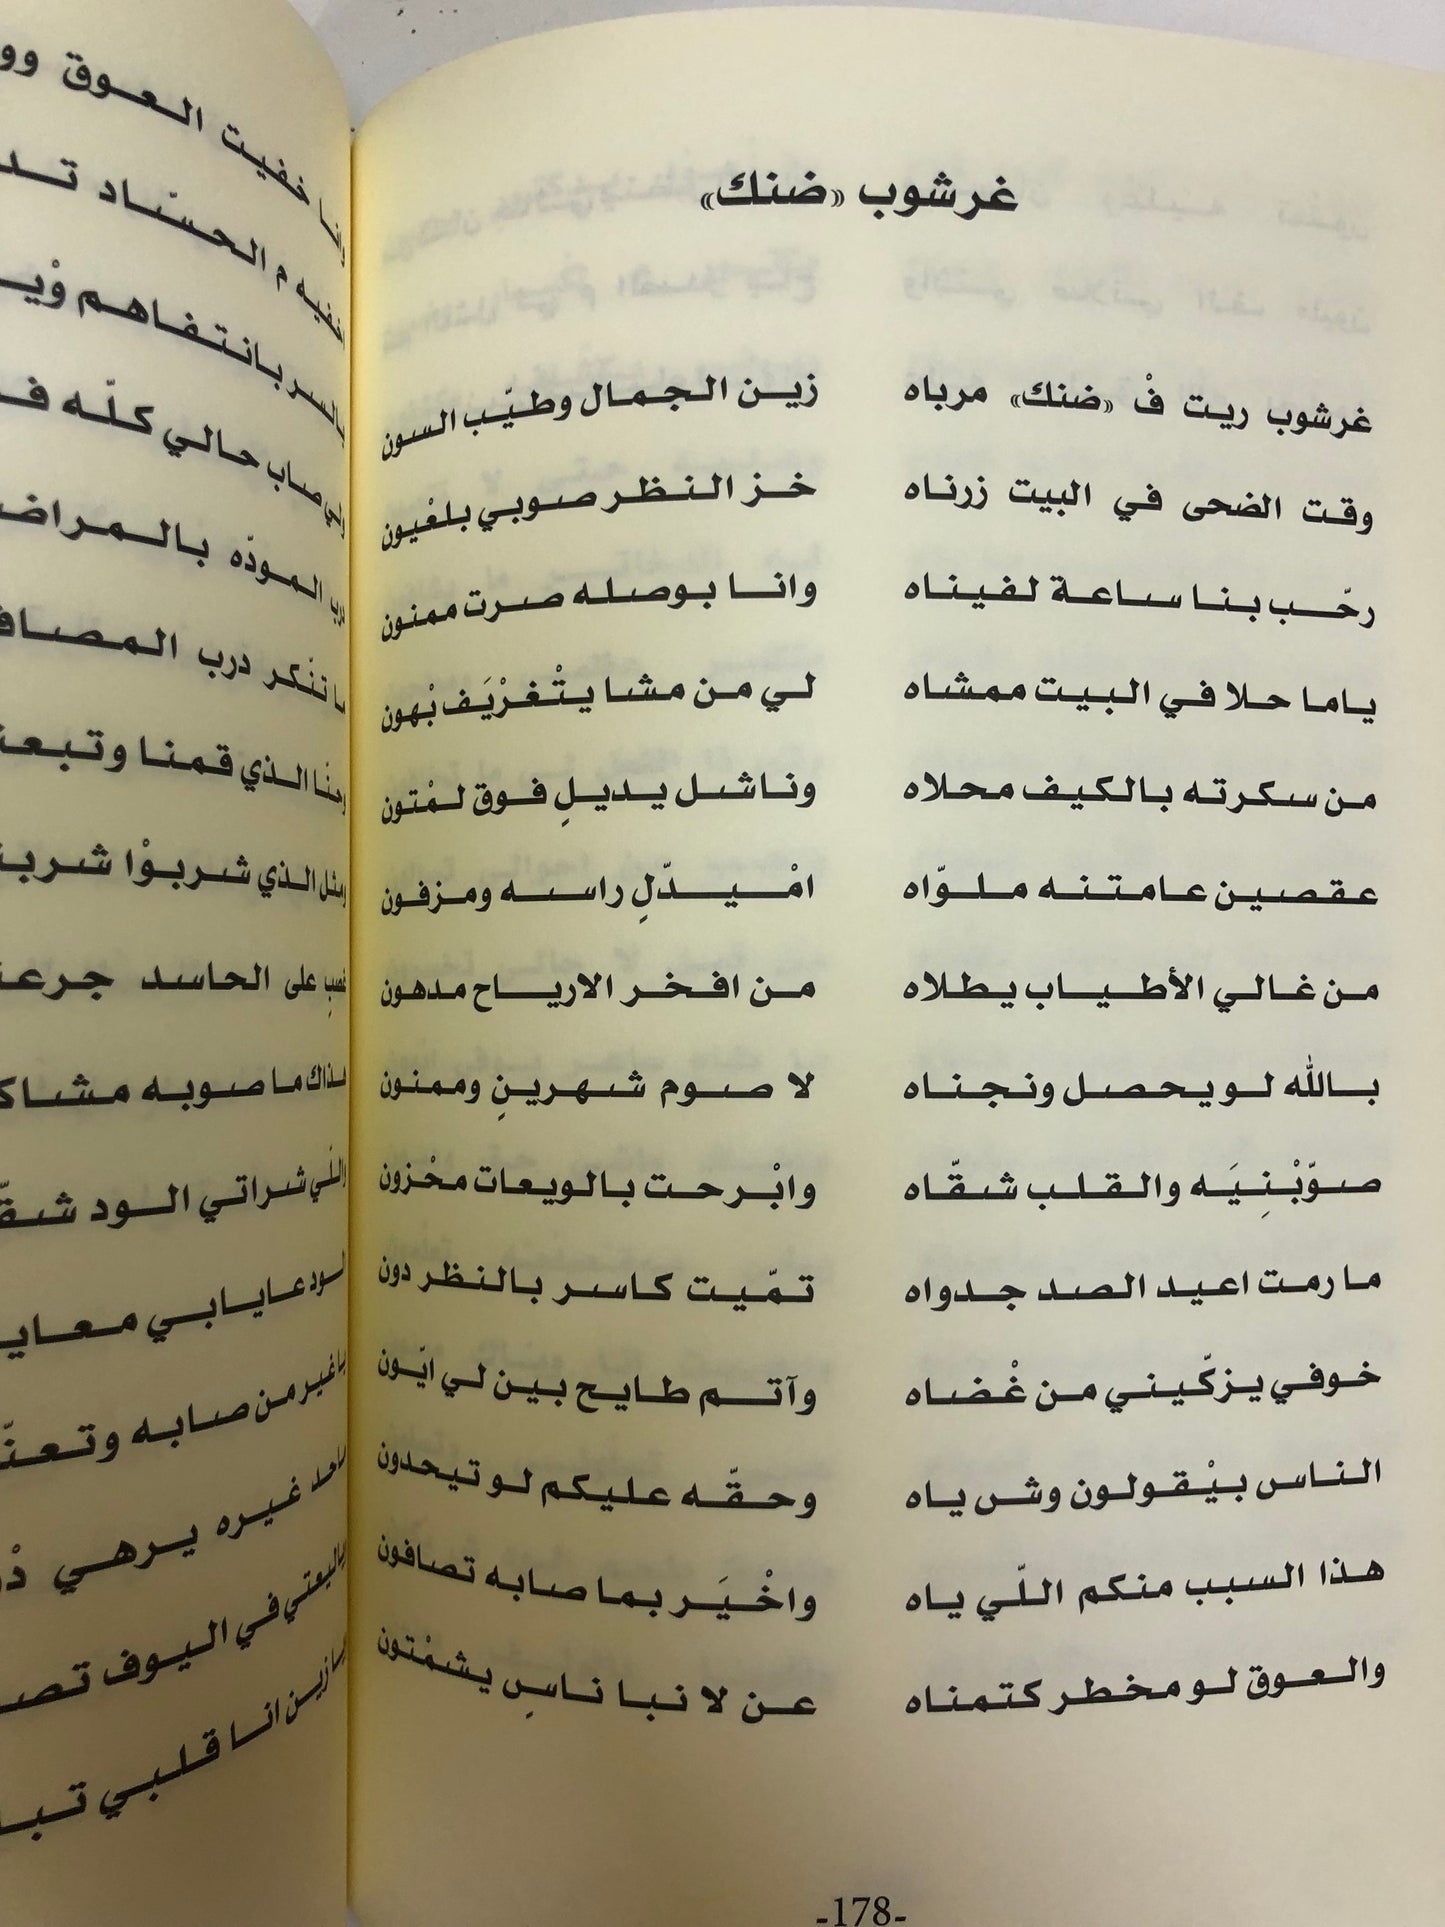 غرشوب «ضنك»
غرشوب ريت فْ «ضنك» مرباه زين الجمال وطيّب السون
وقت الضحى في البيت زرناه خز النظر صوبي بلعْيون
رحّب بنا ساعة لفيناه وانا بوصله صرت ممنون
ياما حلا في البيت ممشاه لي من مشا يتْغرْيَف بْهون
من سكرته بالكيف محلاه وناشل يديلٍ فوق لمْتون
عقصين عامتنه ملوّاه امْيدّلٍ راسه ومزفون
من غالي الأطياب يطلاه من افخر الارياح مدهون
بالله لو يحصل ونجناه لا صوم شهرينٍ وممنون
صوّبْنِيَه والقلب شقّاه وابْرحت بالويعات محْزون
ما رمت اعيد الصد جدواه تمّيت كاسر بالنظر دون
خوفي يزكّيني من غْضاه وآتم طايح بين لي ايّون
الناس بيْقولون وش ياه وحقّه عليكم لو تيحدون
هذا السبب منكم اللّي ياه واخْيَر بما صابه تصافون
والعوق لو مخطر كتمناه عن لا نبا ناسٍ يشمْتون
-178-
خفيت العوق
الحسّاد
بانتفاهم
صاب حالي كلّه
المودّه بالمراض
تنكر درب
الذي قمنا وتبعنـ
الذي شربوْا شربنـ
على الحاسد جرعنـ
ما صوبه مشاكـ
شراتي الود شقّـ
عايابي معايـ
غير من صابه وتعنّـ
غيره يرهي
في اليوف
انا قلبي